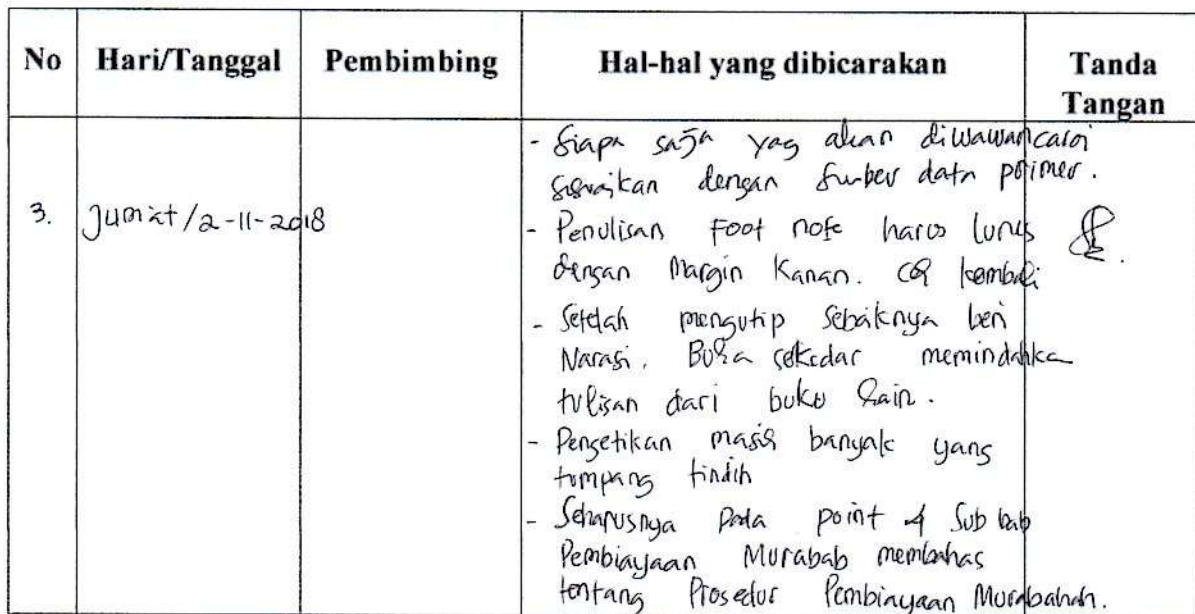 No Hari/Tanggal Pembimbing Hal-hal yang dibicarakan Tanda Tangan
3. Jumat/2-11-2018
- Siapa saja yag akan diwawancarai
sesuaikan dengan sumber data primer.
- Penulisan Foot note harus lurus
dengan Margin Kanan. kembali
- Setelah mengutip sebaiknya beri
Narasi. sekedar memindahka
tulisan dari buku lain.
- Pengetikan masih banyak yang
tumpang tindih
- Seharusnya pada point 4 Sub bab
Pembiayaan Murabab membahas
tentang Prosedur Pembiayaan Murabahah.